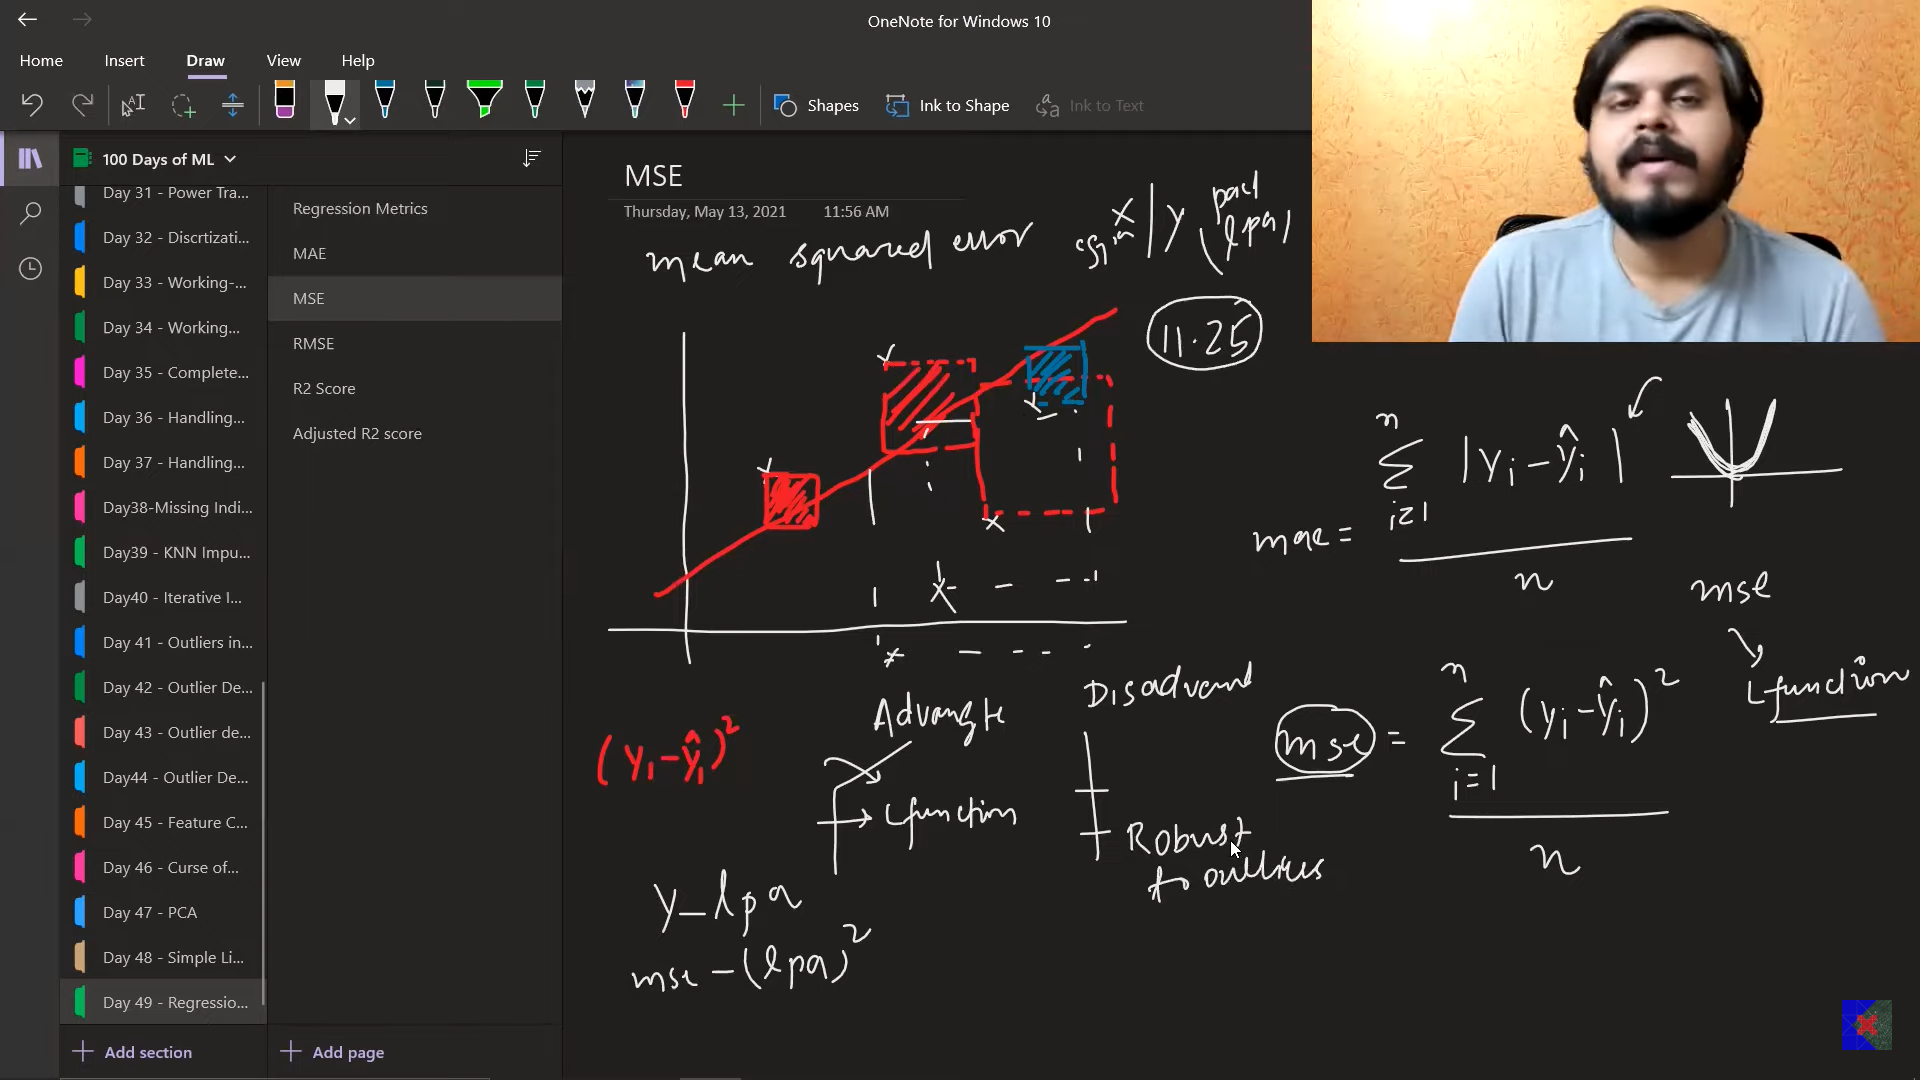 OneNote for Windows 10
Home Insert Draw View Help
Shapes Ink to Shape Ink to Text
100 Days of ML
Day 31 - Power Tra...
Day 32 - Discrtizati...
Day 33 - Working-...
Day 34 - Working...
Day 35 - Complete...
Day 36 - Handling...
Day 37 - Handling...
Day38-Missing Indi...
Day39 - KNN Impu...
Day40 - Iterative I...
Day 41 - Outliers in...
Day 42 - Outlier De...
Day 43 - Outlier de...
Day44 - Outlier De...
Day 45 - Feature C...
Day 46 - Curse of...
Day 47 - PCA
Day 48 - Simple Li...
Day 49 - Regressio...
Add section
Regression Metrics
MAE
MSE
RMSE
R2 Score
Adjusted R2 score
Add page
MSE
Thursday, May 13, 2021 11:56 AM
mean squared error
x | y (lpa)
11.25
mae = Σ i=1 n |yi - ŷi| / n
mse
Lfunction
mse = Σ i=1 n (yi - ŷi)² / n
(y1 - ŷ1)²
Advangte
Lfunction
Disadvant
Robust
to outliers
y_lpa
mse - (lpa)²